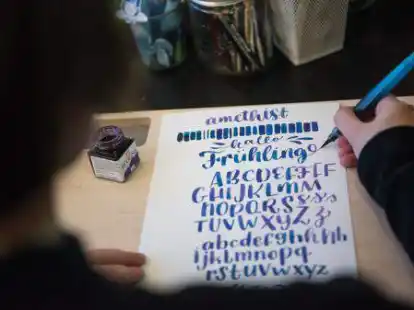 amethist
hallo
Frühling
ABCDEFF
GHIJKLMM
NOPQRSs
TUVWXYZ
abcdefghhh
ijklmnopq
rstuvwxyz